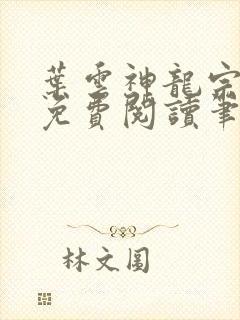 葉雲神龍宗
免費閱讀筆
林文圓